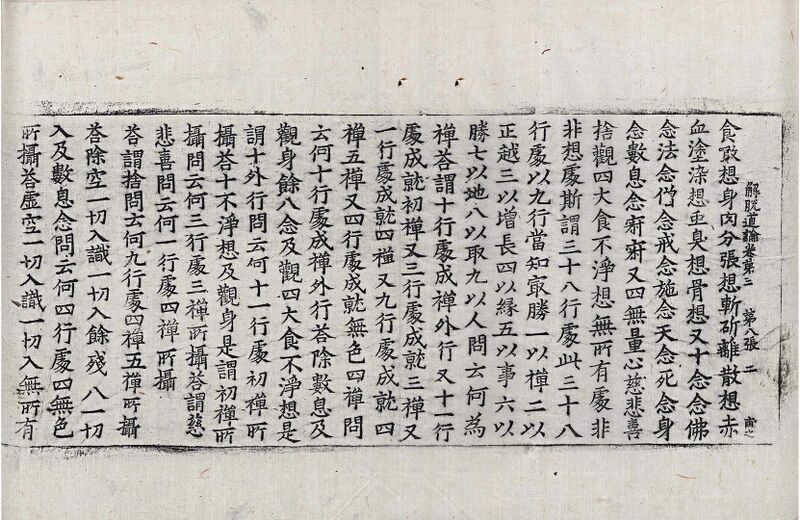 食噉想身肉分張想斬斫離散想赤
解脫道論卷第三 第八張 二 南之
血塗涂想䖝臭想骨想又十念念佛
念法念僧念戒念施念天念死念身
念數息念寂寂又四無量心慈悲喜
捨觀四大食不淨想無所有處非
非想處斯謂三十八行處此三十八
行處以九行當知㝡勝一以禪二以
正越三以增長四以緣五以事六以
勝七以地八以取九以人問云何為
禪荅謂十行處成禪外行又十一行
處成就初禪又三行處成就三禪又
一行處成就四禪又九行處成就四
禪五禪又四行處成就無色四禪問
云何十行處成禪外行荅除數息及
觀身餘八念及觀四大食不淨想是
謂十外行問云何十一行處初禪所
攝荅十不淨想及觀身是謂初禪所
攝問云何三行處三禪所攝荅謂慈
悲喜問云何一行處四禪所攝
荅謂捨問云何九行處四禪五禪所攝
荅除空一切入識一切入餘殘八一切
入及數息念問云何四行處四無色
所攝荅虛空一切入識一切入無所有